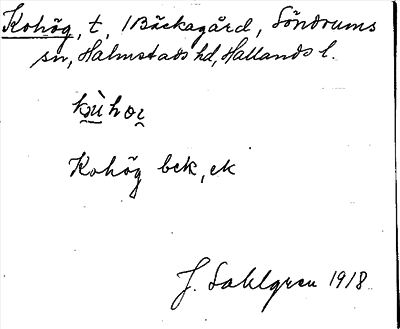 Kohög, t, 1 Bäckagård, Söndrums
sn, Halmstads hd, Hallands l.
Kohög bek, ek
J. Sahlgren 1918